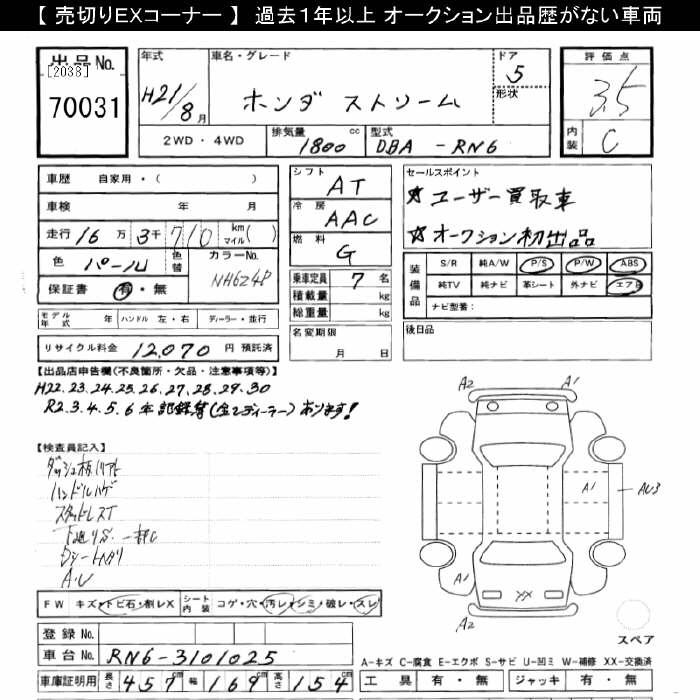 【 売切りEXコーナー 】 過去１年以上 オークション出品歴がない車両
出品No.
[2038]
70031
年式
H21/8月
車名・グレード
ホンダ ストリーム
ドア
5
形状
評価点
3.5
内装
C
2WD・4WD
排気量
1800 cc
型式
DBA -RN6
車歴 自家用・( )
車検 年 月
走行 16万3千710 km マイル( )
色 パール 色替
カラーNo. NH624P
保証書 有・無
シフト AT
冷房 AAC
燃料 G
乗車定員 7 名
積載量 kg
総重量 kg
名変期限
月 日
セールスポイント
☆ユーザー買取車
☆オークション初出品
装備品
S/R 純A/W P/S P/W ABS
純TV 純ナビ 革シート 外ナビ エアB
ナビ型番:
後日品
モデル年式 年 ハンドル 左・右 ディーラー・並行
リサイクル料金 12,070 円 預託済
【出品店申告欄(不良箇所・欠品・注意事項等)】
H22.23.24.25.26.27.28.29.30
R2.3.4.5.6年記録簿(全てディーラー)あります!
【検査員記入】
ハンドルハゲ
スタッドレスT
A.U
FW キズ・トビ石・割レX シート内装 コゲ・穴・汚レ・シミ・破レ・スレ
登録No.
車台No. RN6-3101025
車庫証明用 長さ 457 cm 幅 169 cm 高さ 154 cm
A2
A1
A1
AU3
A1
XX
A2
スペア
A-キズ C-腐食 E-エクボ S-サビ U-凹ミ W-補修 XX-交換済
工具 有・無 ジャッキ 有・無